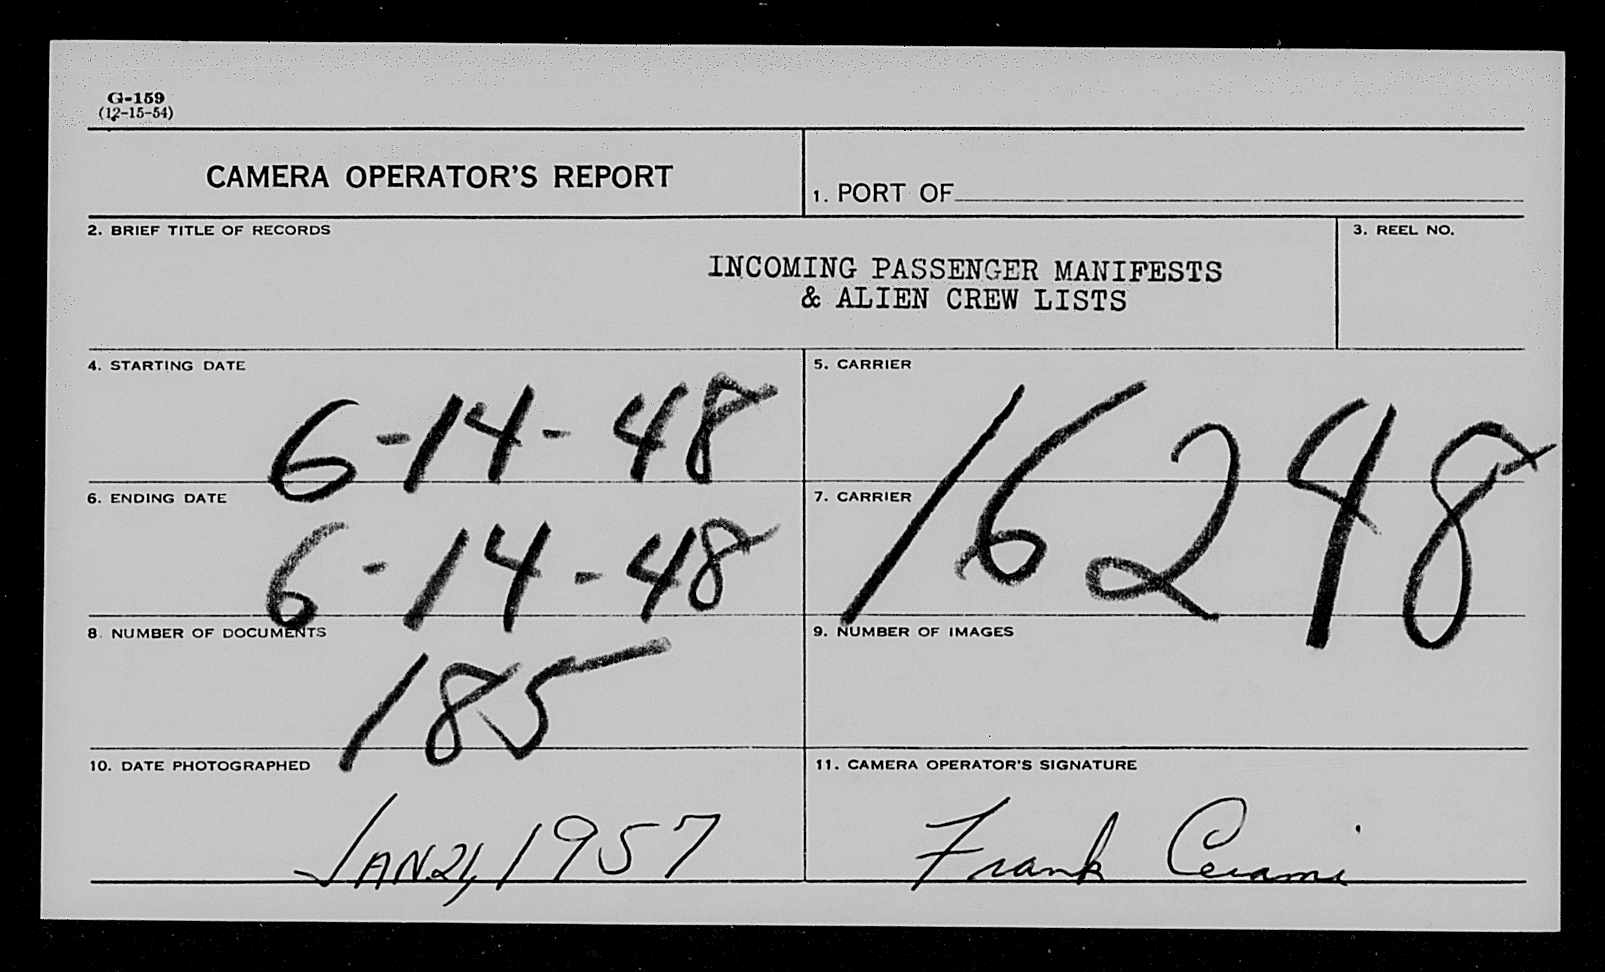 G-159
(12-15-54)
CAMERA OPERATOR'S REPORT
1. PORT OF
2. BRIEF TITLE OF RECORDS
INCOMING PASSENGER MANIFESTS
& ALIEN CREW LISTS
3. REEL NO.
4. STARTING DATE
6-14-48
5. CARRIER
16248
6. ENDING DATE
6-14-48
7. CARRIER
8. NUMBER OF DOCUMENTS
185
9. NUMBER OF IMAGES
10. DATE PHOTOGRAPHED
JAN 21, 1957
11. CAMERA OPERATOR'S SIGNATURE
Frank Cerami